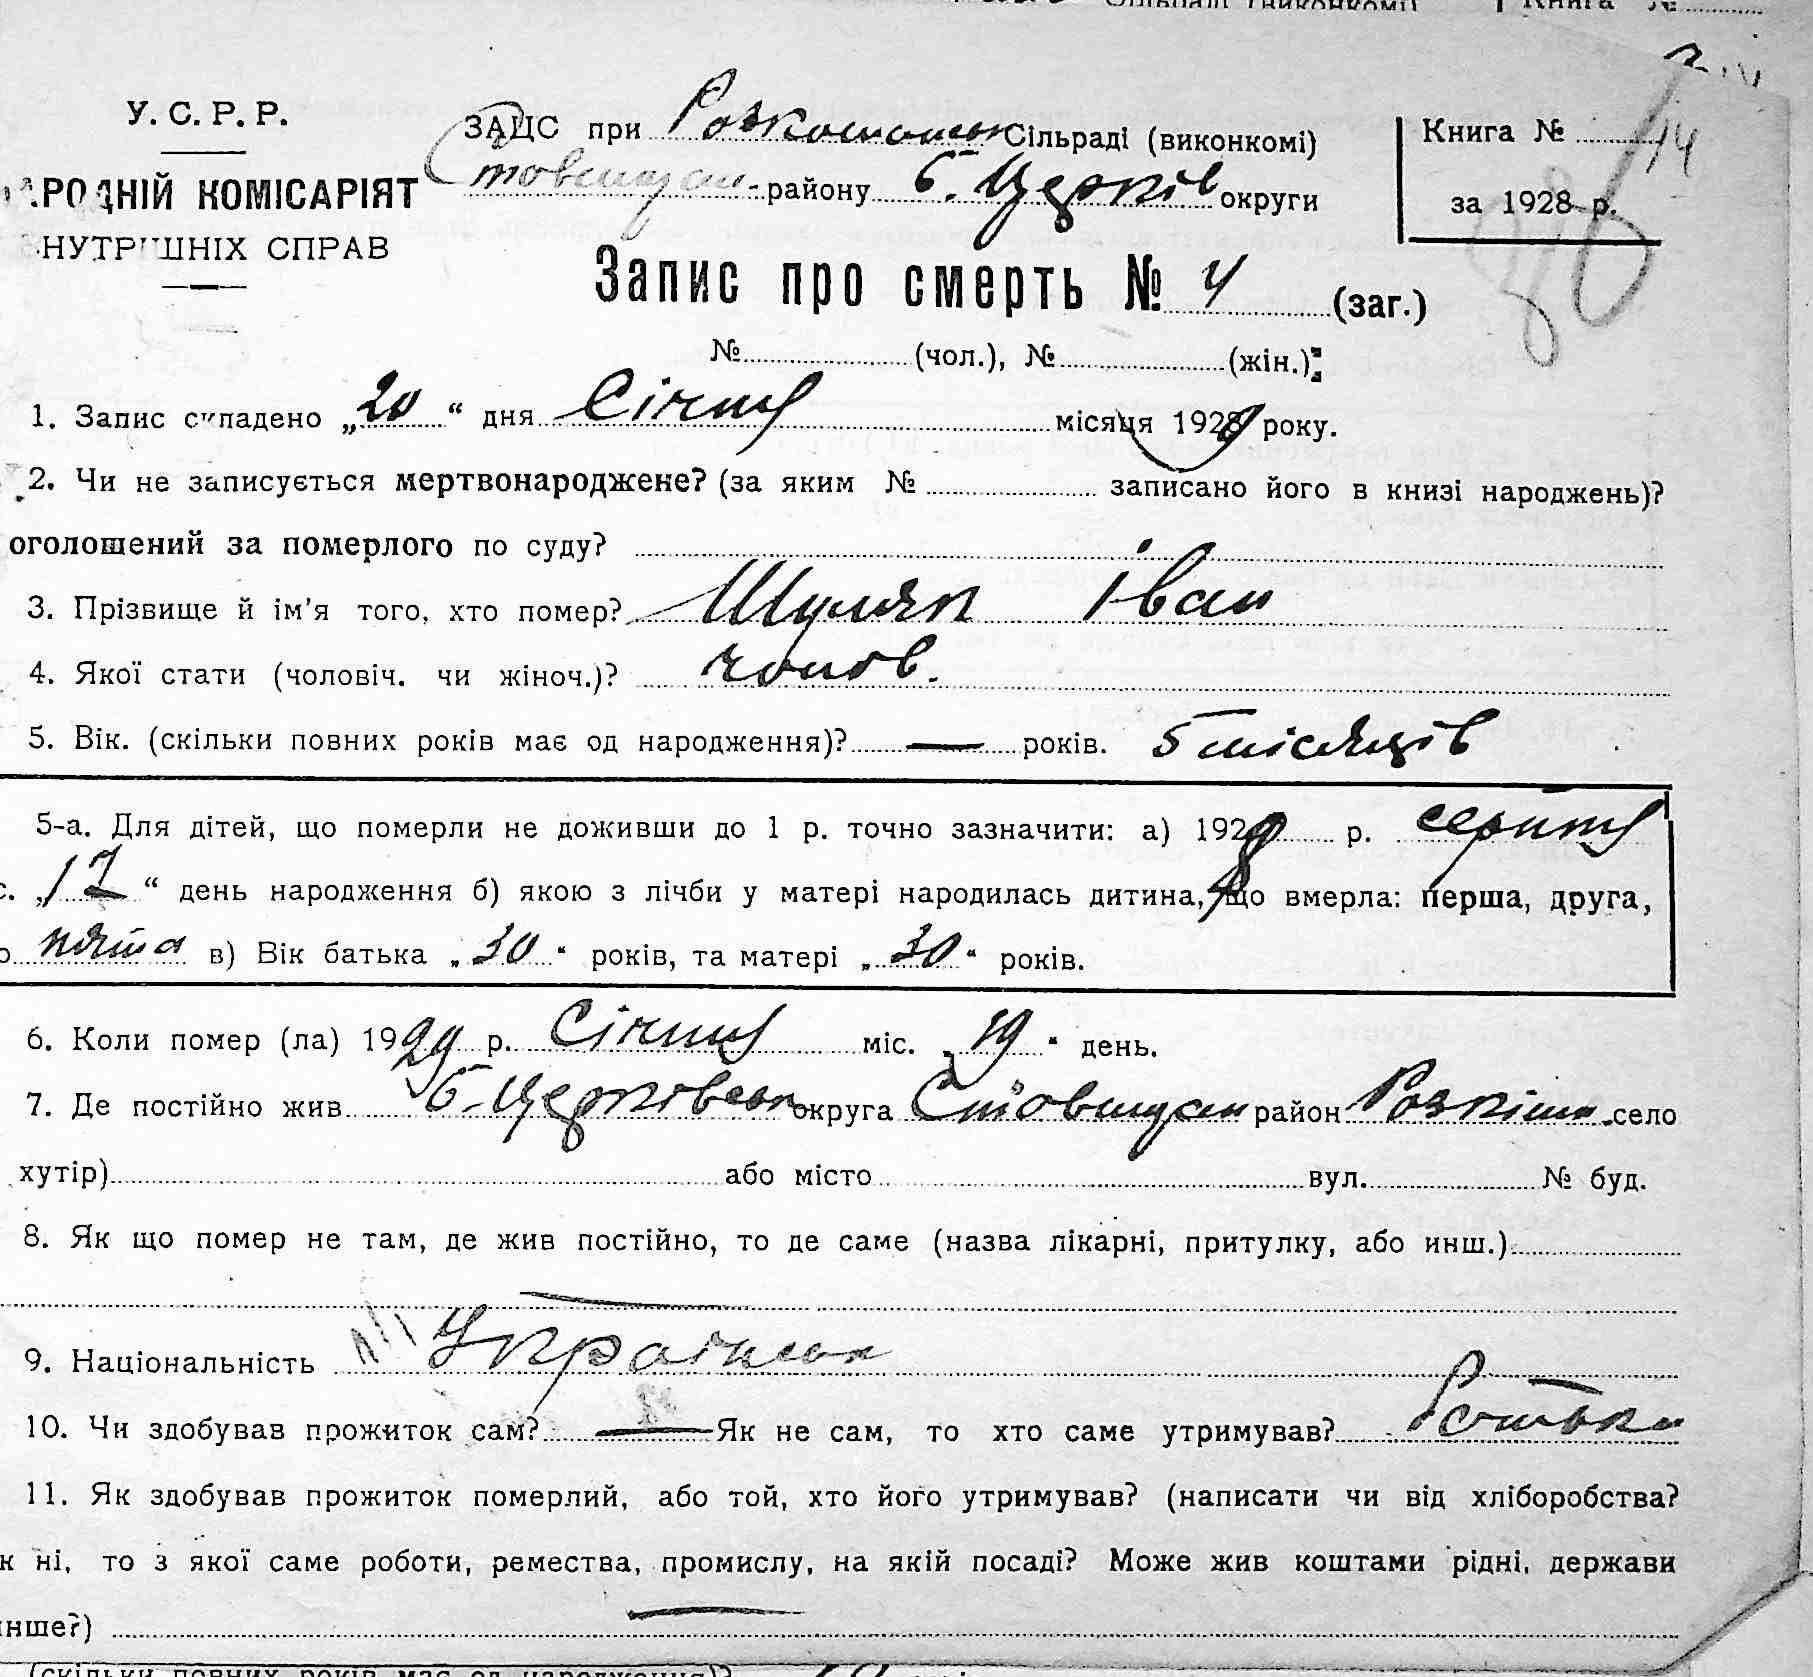 Книга №
У. С. Р. Р.
ЗАЦС при Розкошанськ Сільраді (виконкомі)
Ставищан- району Б. Церків округи
Книга № 14
за 1928 р.
НАРОДНІЙ КОМІСАРІЯТ
ВНУТРІШНІХ СПРАВ
Запис про смерть № 4 (заг.)
№ (чол.), № (жін.)
1. Запис складено „20“ дня Січня місяця 1929 року.
2. Чи не записується мертвонароджене? (за яким № записано його в книзі народжень)?
оголошений за померлого по суду?
3. Прізвище й ім'я того, хто помер? Шуляк Іван
4. Якої стати (чоловіч. чи жіноч.)? чолов.
5. Вік. (скільки повних років має од народження)? — років. 5 місяців
5-а. Для дітей, що померли не доживши до 1 р. точно зазначити: а) 1928 р. серпня
с. „17“ день народження б) якою з лічби у матері народилась дитина, що вмерла: перша, друга,
о пята в) Вік батька „30“ років, та матері „30“ років.
6. Коли помер (ла) 1929 р. Січня міс. „19“ день.
7. Де постійно жив Б. Церківськ округа Ставищан район Розкішн. село
хутір) або місто вул. № буд.
8. Як що помер не там, де жив постійно, то де саме (назва лікарні, притулку, або инш.)
9. Національність Українськ
10. Чи здобував прожиток сам? — Як не сам, то хто саме утримував? Батьки
11. Як здобував прожиток померлий, або той, хто його утримував? (написати чи від хліборобства?
к ні, то з якої саме роботи, ремества, промислу, на якій посаді? Може жив коштами рідні, держави
инше?)
(скільки повних років має од народження)?